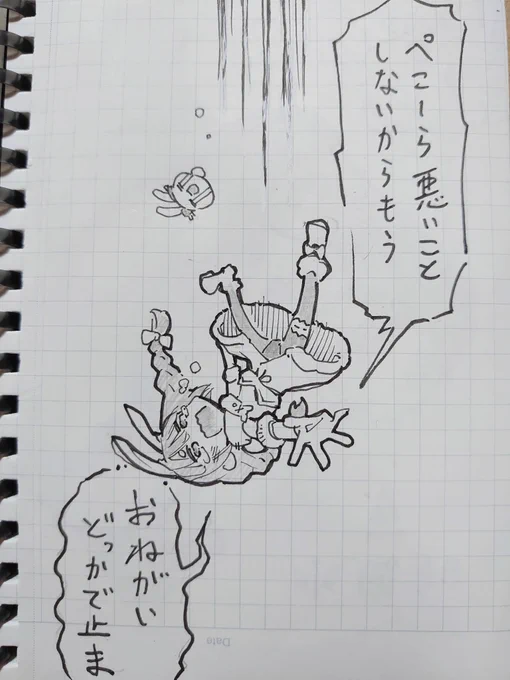 ぺこーら 悪いこと
しないからもう
おねがい
どっかで止ま
Date